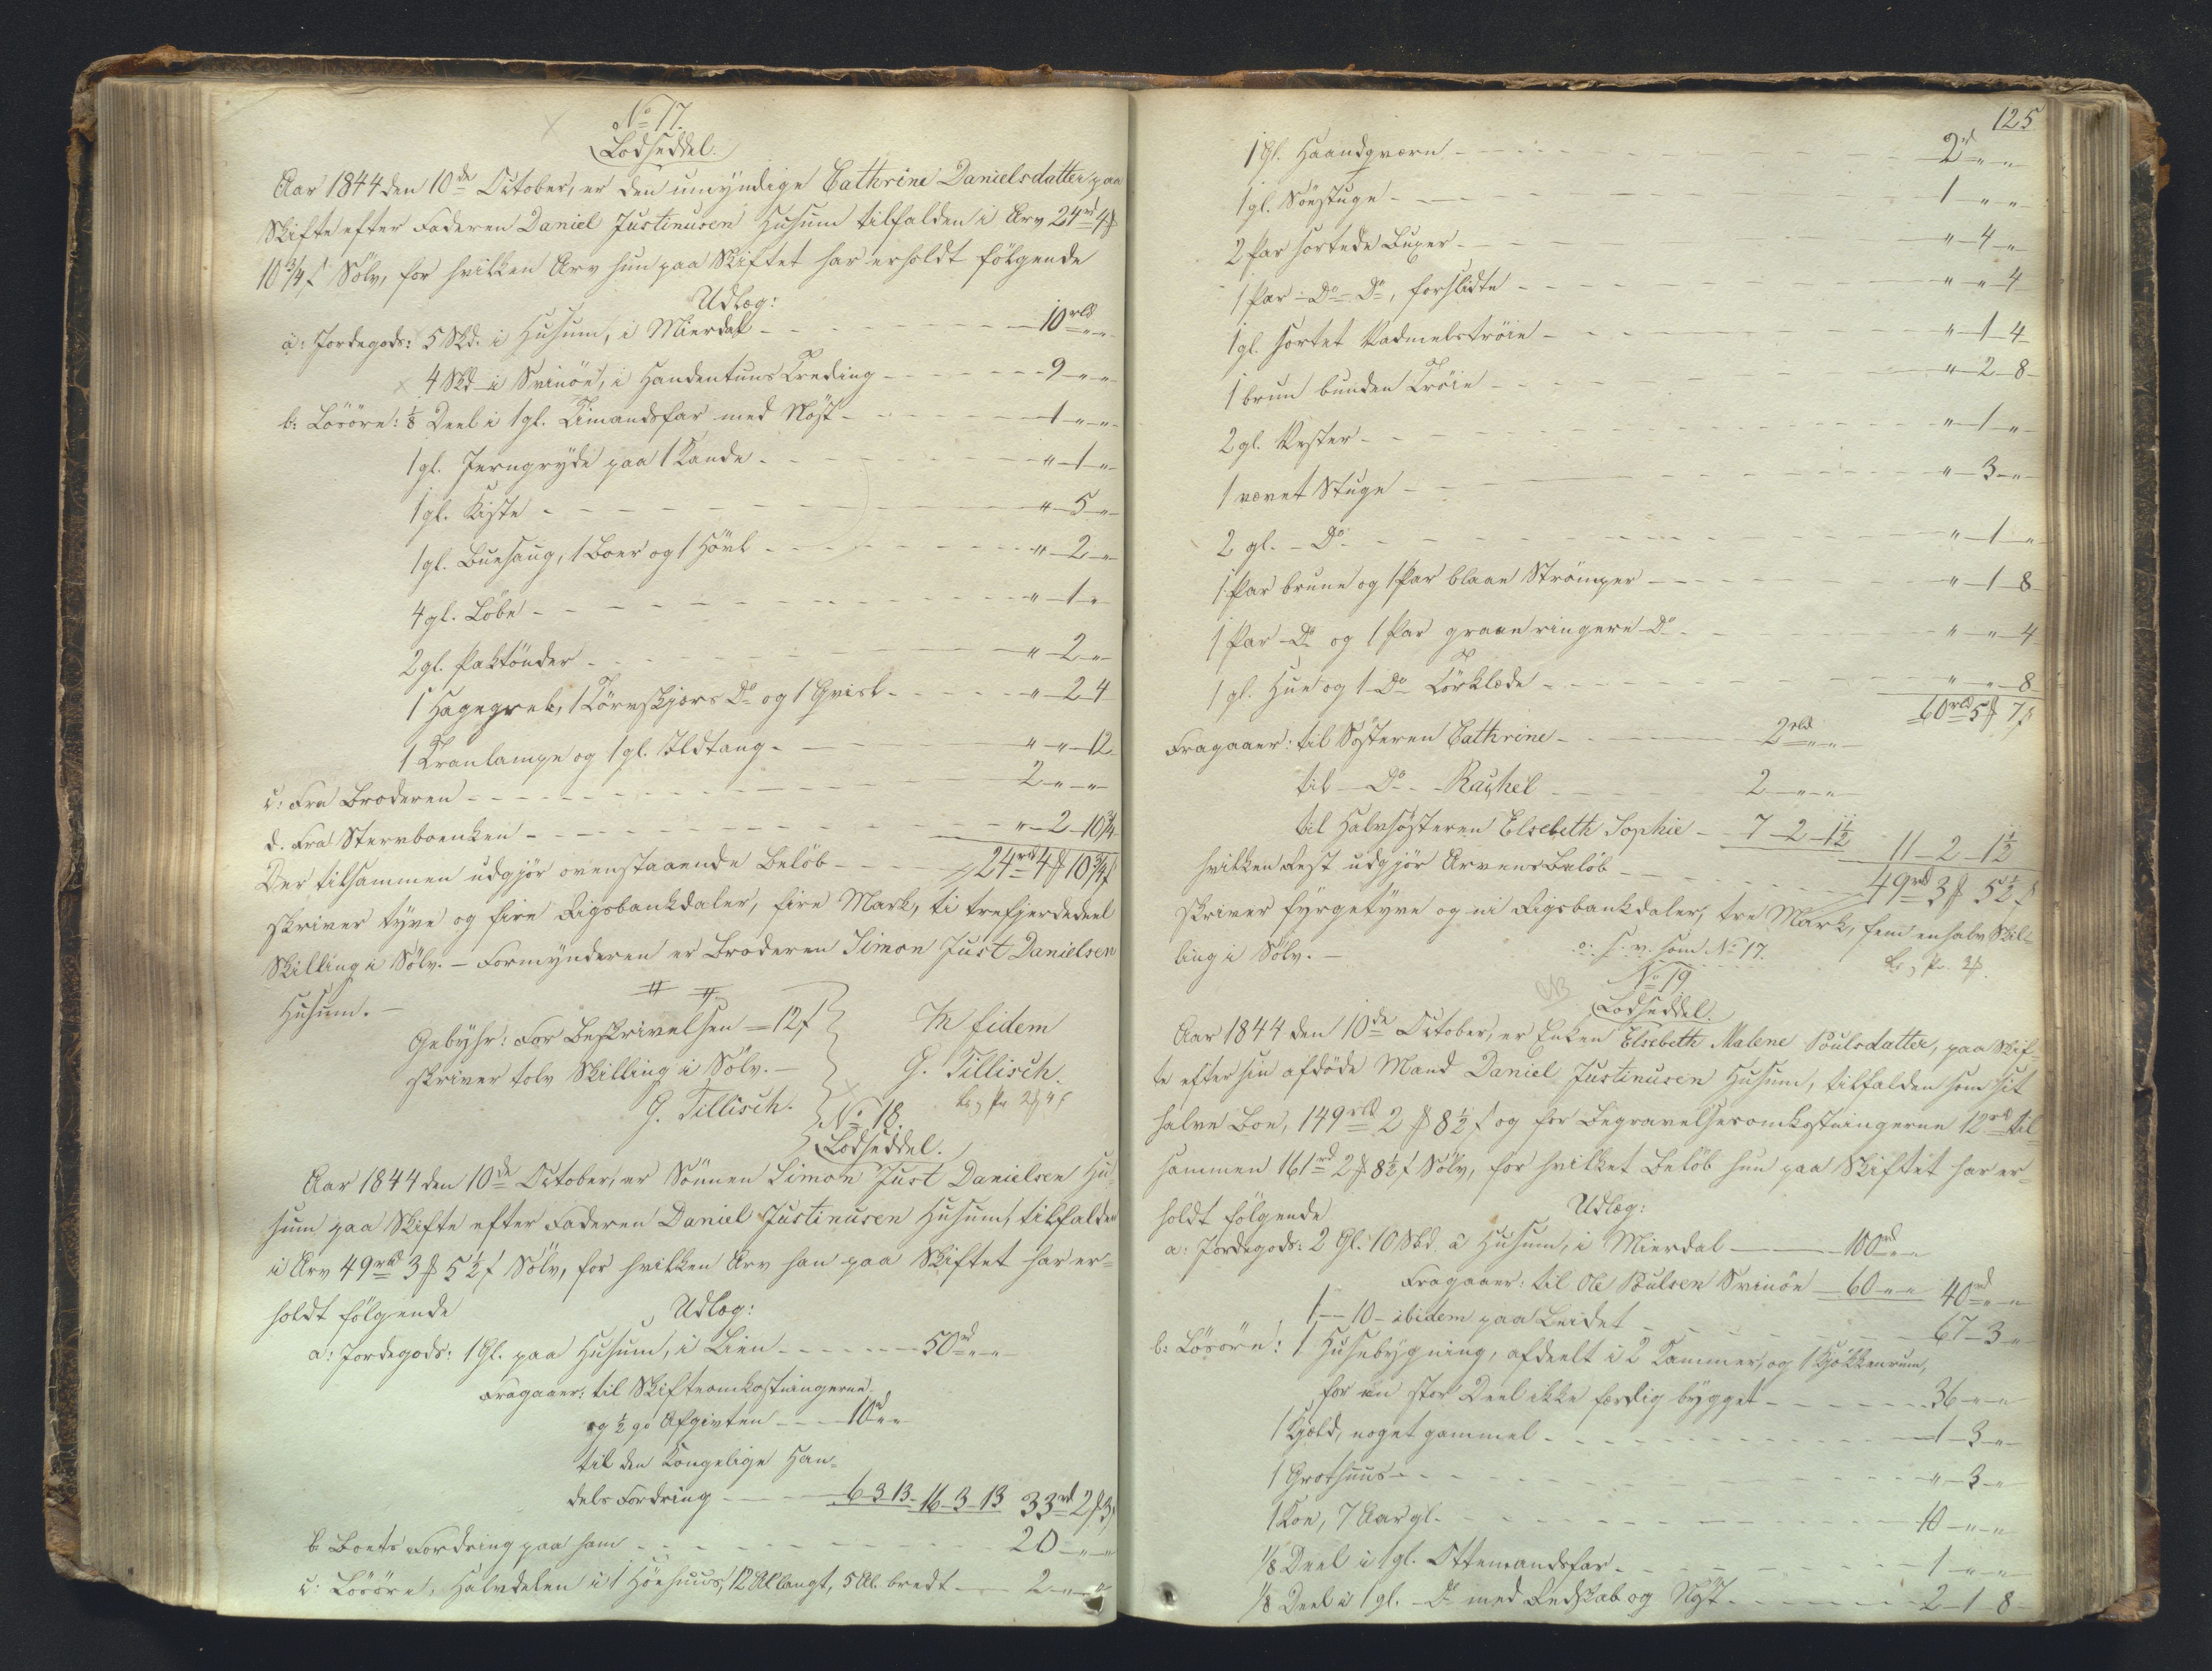 No 17.
Lodseddel.
Aar 1844 den 10de October, er den umyndige Cathrine Danielsdatter, paa
Skifte efter Faderen Daniel Justinusen Husum tilfalden i Arv 24rd 4 ₥
10 3/4 ß Sölv, for hvilken Arv hun paa Skiftet har erholdt fölgende
Udlæg:
a: Jordegods: 5 Skd. i Husum, i Mierdal - 10rbd " "
4 Skd i Svinöe, i Handentuns Treding - 9 " "
b: Lösöre: 1/8 Deel i 1 gl. Timandsfar med Nöst - 1 " "
1 gl. Jerngryde paa 1 Kande - " 1 "
1 gl. Kiste - " 5 "
1 gl. Buesaug, 1 Boer og 1 Hövl - " 2 "
4 gl. Löbe - " 1 "
2 gl. Saktönder - " 2 "
1 Hagegreb, 1 Törvskjærs Do og 1 Hvisk - " 2 4
1 Tranlampe og 1 gl. Ildtang - " " 12
c: Fra Broderen - 2 " "
d. Fra Stervboenken - " 2 10 3/4
Der tilsammen udgjör ovenstaaende Belöb - 24rd 4 ₥ 10 3/4 ß
skriver tyve og fire Rigsbankdaler, fire Mark, ti trefjerdedeel
Skilling i Sölv. - Formynderen er Broderen Simon Just Danielsen
Husum. -
Gebyhr: For Beskrivelsen = 12 ß
skriver tolv Skilling i Sölv. -
G. Tillisch.
In fidem
G. Tillisch.
No 18.
Lodseddel.
Aar 1844 den 10de October, er Sönnen Simon Just Danielsen Hu-
sum paa Skifte efter Faderen Daniel Justinusen Husum, tilfalden
i Arv 49rbd 3 ₥ 5 1/2 ß Sölv, for hvilken Arv han paa Skiftet har er-
holdt fölgende
Udlæg:
a: Jordegods: 1 Gl. paa Husum, i Lien - 50rd " "
Fragaaer: til Skifteomkostningerne
og 1/2 pc Afgivten - 10rd " "
til den Kongelige Han-
dels Fordring - 6 3 13 16 3 13 33rd 2 ₥ 3 ß
b Boets Fordring paa ham - 20 " "
c: Lösöre, Halvdelen i 1 Höehuus, 12 Al. langt, 5 Al. bredt - 2 " "
125
1 Gl. Haandqværn - 2rd " "
1 gl. Söestuge - 1 " "
2 Par sortede Buxer - " 4 "
1 Par - Do - Do, forslidte - " " 4
1 gl. sortet Vadmelströie - " 1 4
1 brun bunden Tröie - " 2 8
2 gl. Vester - " 1 "
1 vævet Stuge - " 3 "
2 gl. - Do - " 1 "
1 Par brune og 1 Par blaae Strömper - " 1 8
1 Par Do og 1 Par graae ringere Do - " " 4
1 gl. Hue og 1 Do Törklæde - " " 8
60rbd 5 ₥ 7 ß
Fragaaer: til Sösteren Cathrine - 2rbd " "
til - Do - Rachel - 2 " "
til Halvsösteren Elsebeth Sophie - 7 2 1 1/2 11 2 1 1/2
hvilken Rest udgjör Arvens Belöb - 49rbd 3 ₥ 5 1/2 ß
skriver fyrgetyve og ni Rigsbankdaler, tre Mark, fem en halv Skil-
ling i Sölv. -
o: s. v. som No 17.
No 19
Lodseddel.
Aar 1844 den 10de October, er Enken Elsebeth Malene Poulsdatter, paa Skif-
te efter sin afdöde Mand Daniel Justinusen Husum, tilfalden som sit
halve Boe, 149rbd 2 ₥ 8 1/2 ß og for Begravelsesomkostningerne 12rd til-
sammen 161rd 2 ₥ 8 1/2 ß Sölv, for hvilket Belöb hun paa Skiftet har er-
holdt fölgende
Udlæg:
a: Jordegods: 2 Gl. 10 Skd a Husum, i Mierdal - 100rd " "
Fragaaer: til Ole Poulsen Svinöe - 60 " " 40rd " "
1 - 10 - ibidem paa Leidet - 67 3 "
b: Lösöre: 1 Husebygning, afdeelt i 2 Kammer, og 1 Kjökkenrum,
for en stor Deel ikke færdig bygget - 36 " "
1 Hjæld, noget gammel - 1 3 "
1 Grothuus - " 3 "
1 Koe, 7 Aar gl. - 10 " "
1/8 Deel i 1 gl. Ottemandsfar - 1 " "
1/8 Deel i 1 gl. - Do med Redskab og Nöst - 2 1 8